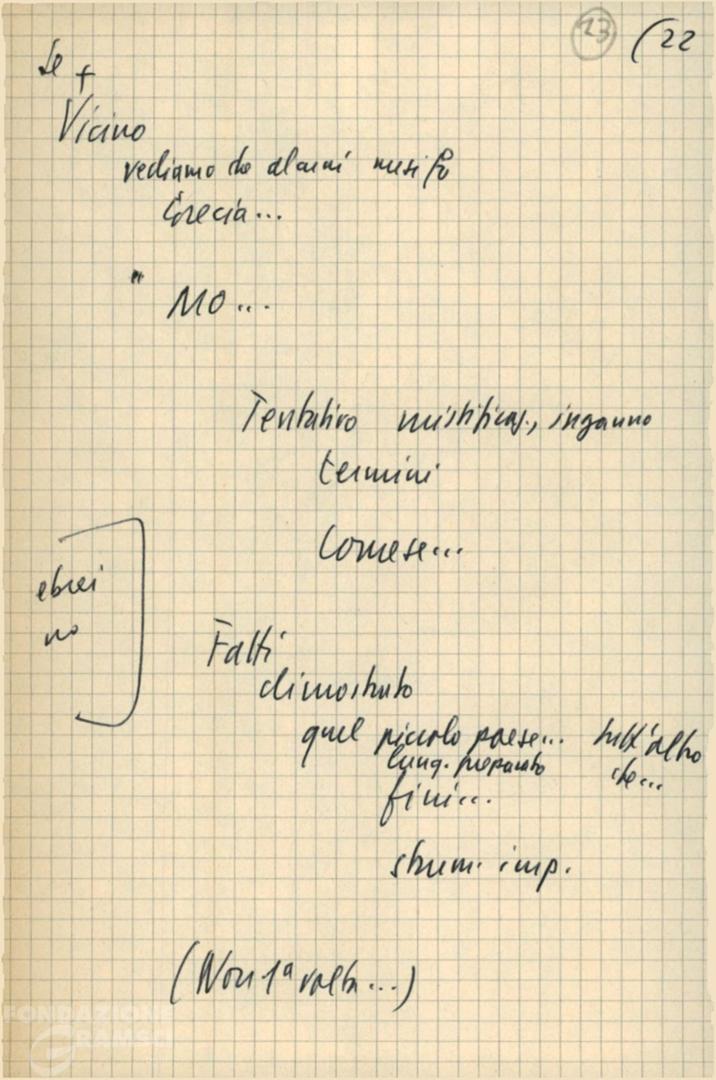 23 (22
Se +
Vicino
vediamo che alcuni mesi fa
Grecia...
" MO...
Tentativo mistificaz., inganno
termini
Come se...
ebrei
no
Fatti
dimostrato
quel piccolo paese... tutt'altro
lung. preparato che...
fini...
strum. imp.
(Non 1ª volta...)
FONDAZIONE
GRAMSCI